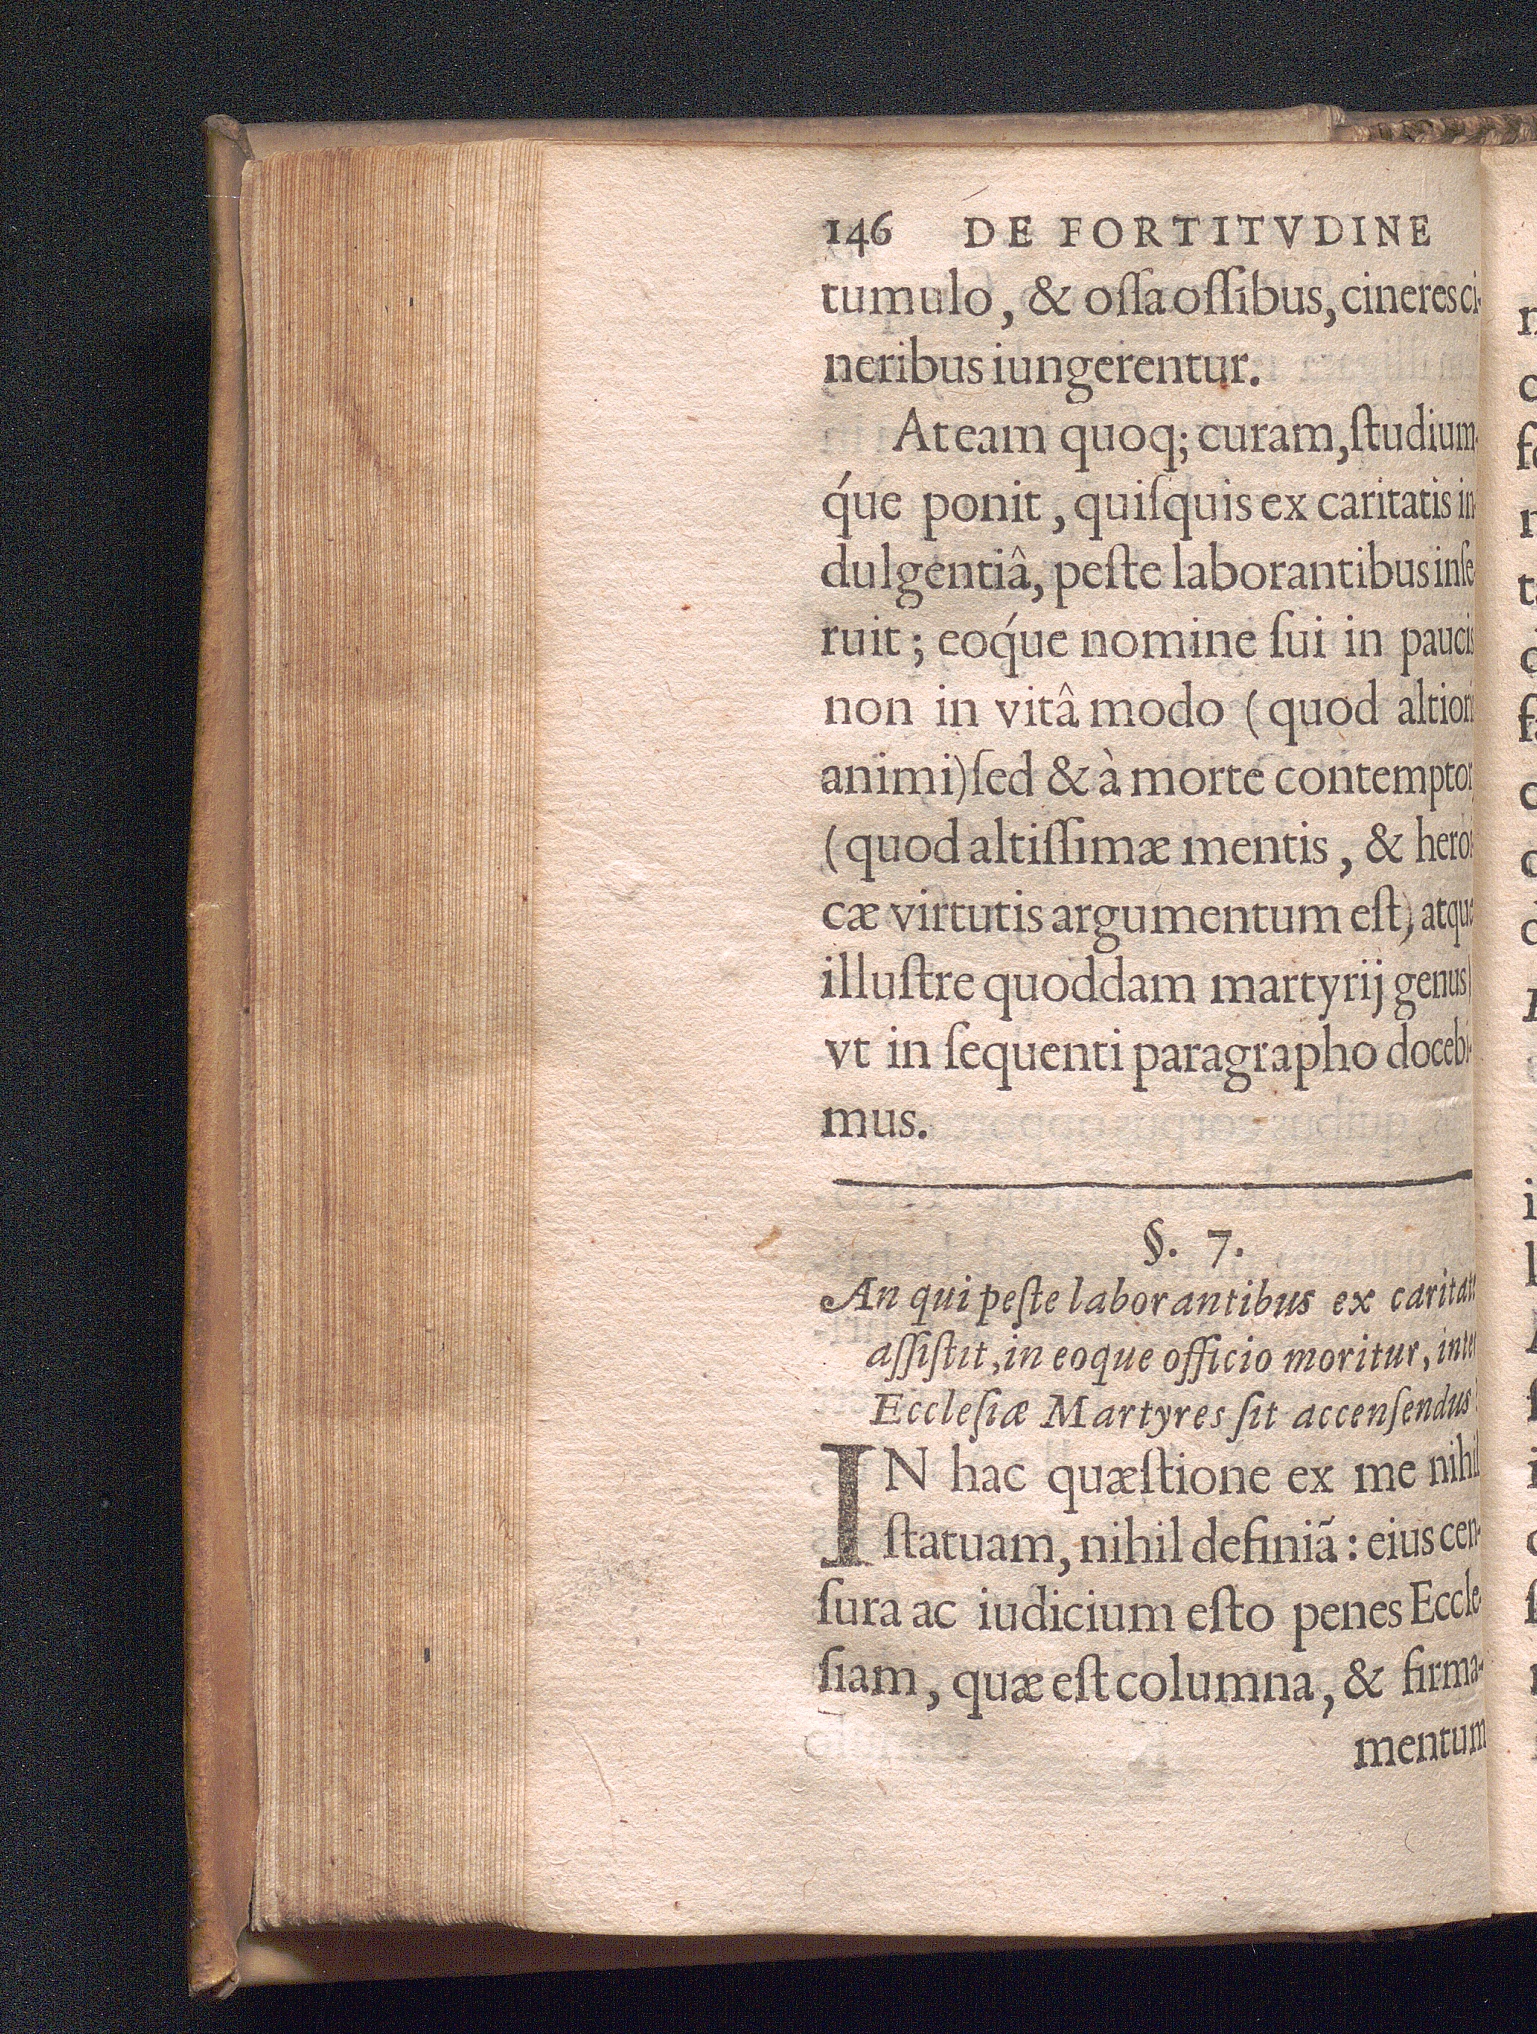 146 DE FORTITVDINE
tumulo, & oſſa oſſibus, cineres ci-
neribus iungerentur.
At eam quoq; curam, ſtudium-
q́ue ponit, quiſquis ex caritatis in-
dulgentiâ, peſte laborantibus inſe-
ruit; eoq́ue nomine ſui in paucis
non in vitâ modo (quod altioris
animi) ſed & à morte contemptor,
(quod altiſſimæ mentis, & heroi-
cæ virtutis argumentum eſt) atque
illuſtre quoddam martyrij genus
vt in ſequenti paragrapho docebi-
mus.
§. 7.
An qui peſte laborantibus ex caritate
aſſiſtit, in eoque officio moritur, inter
Eccleſiæ Martyres ſit accenſendus?
IN hac quæſtione ex me nihil
ſtatuam, nihil definiã: eius cen-
ſura ac iudicium eſto penes Eccle-
ſiam, quæ eſt columna, & firma-
mentum